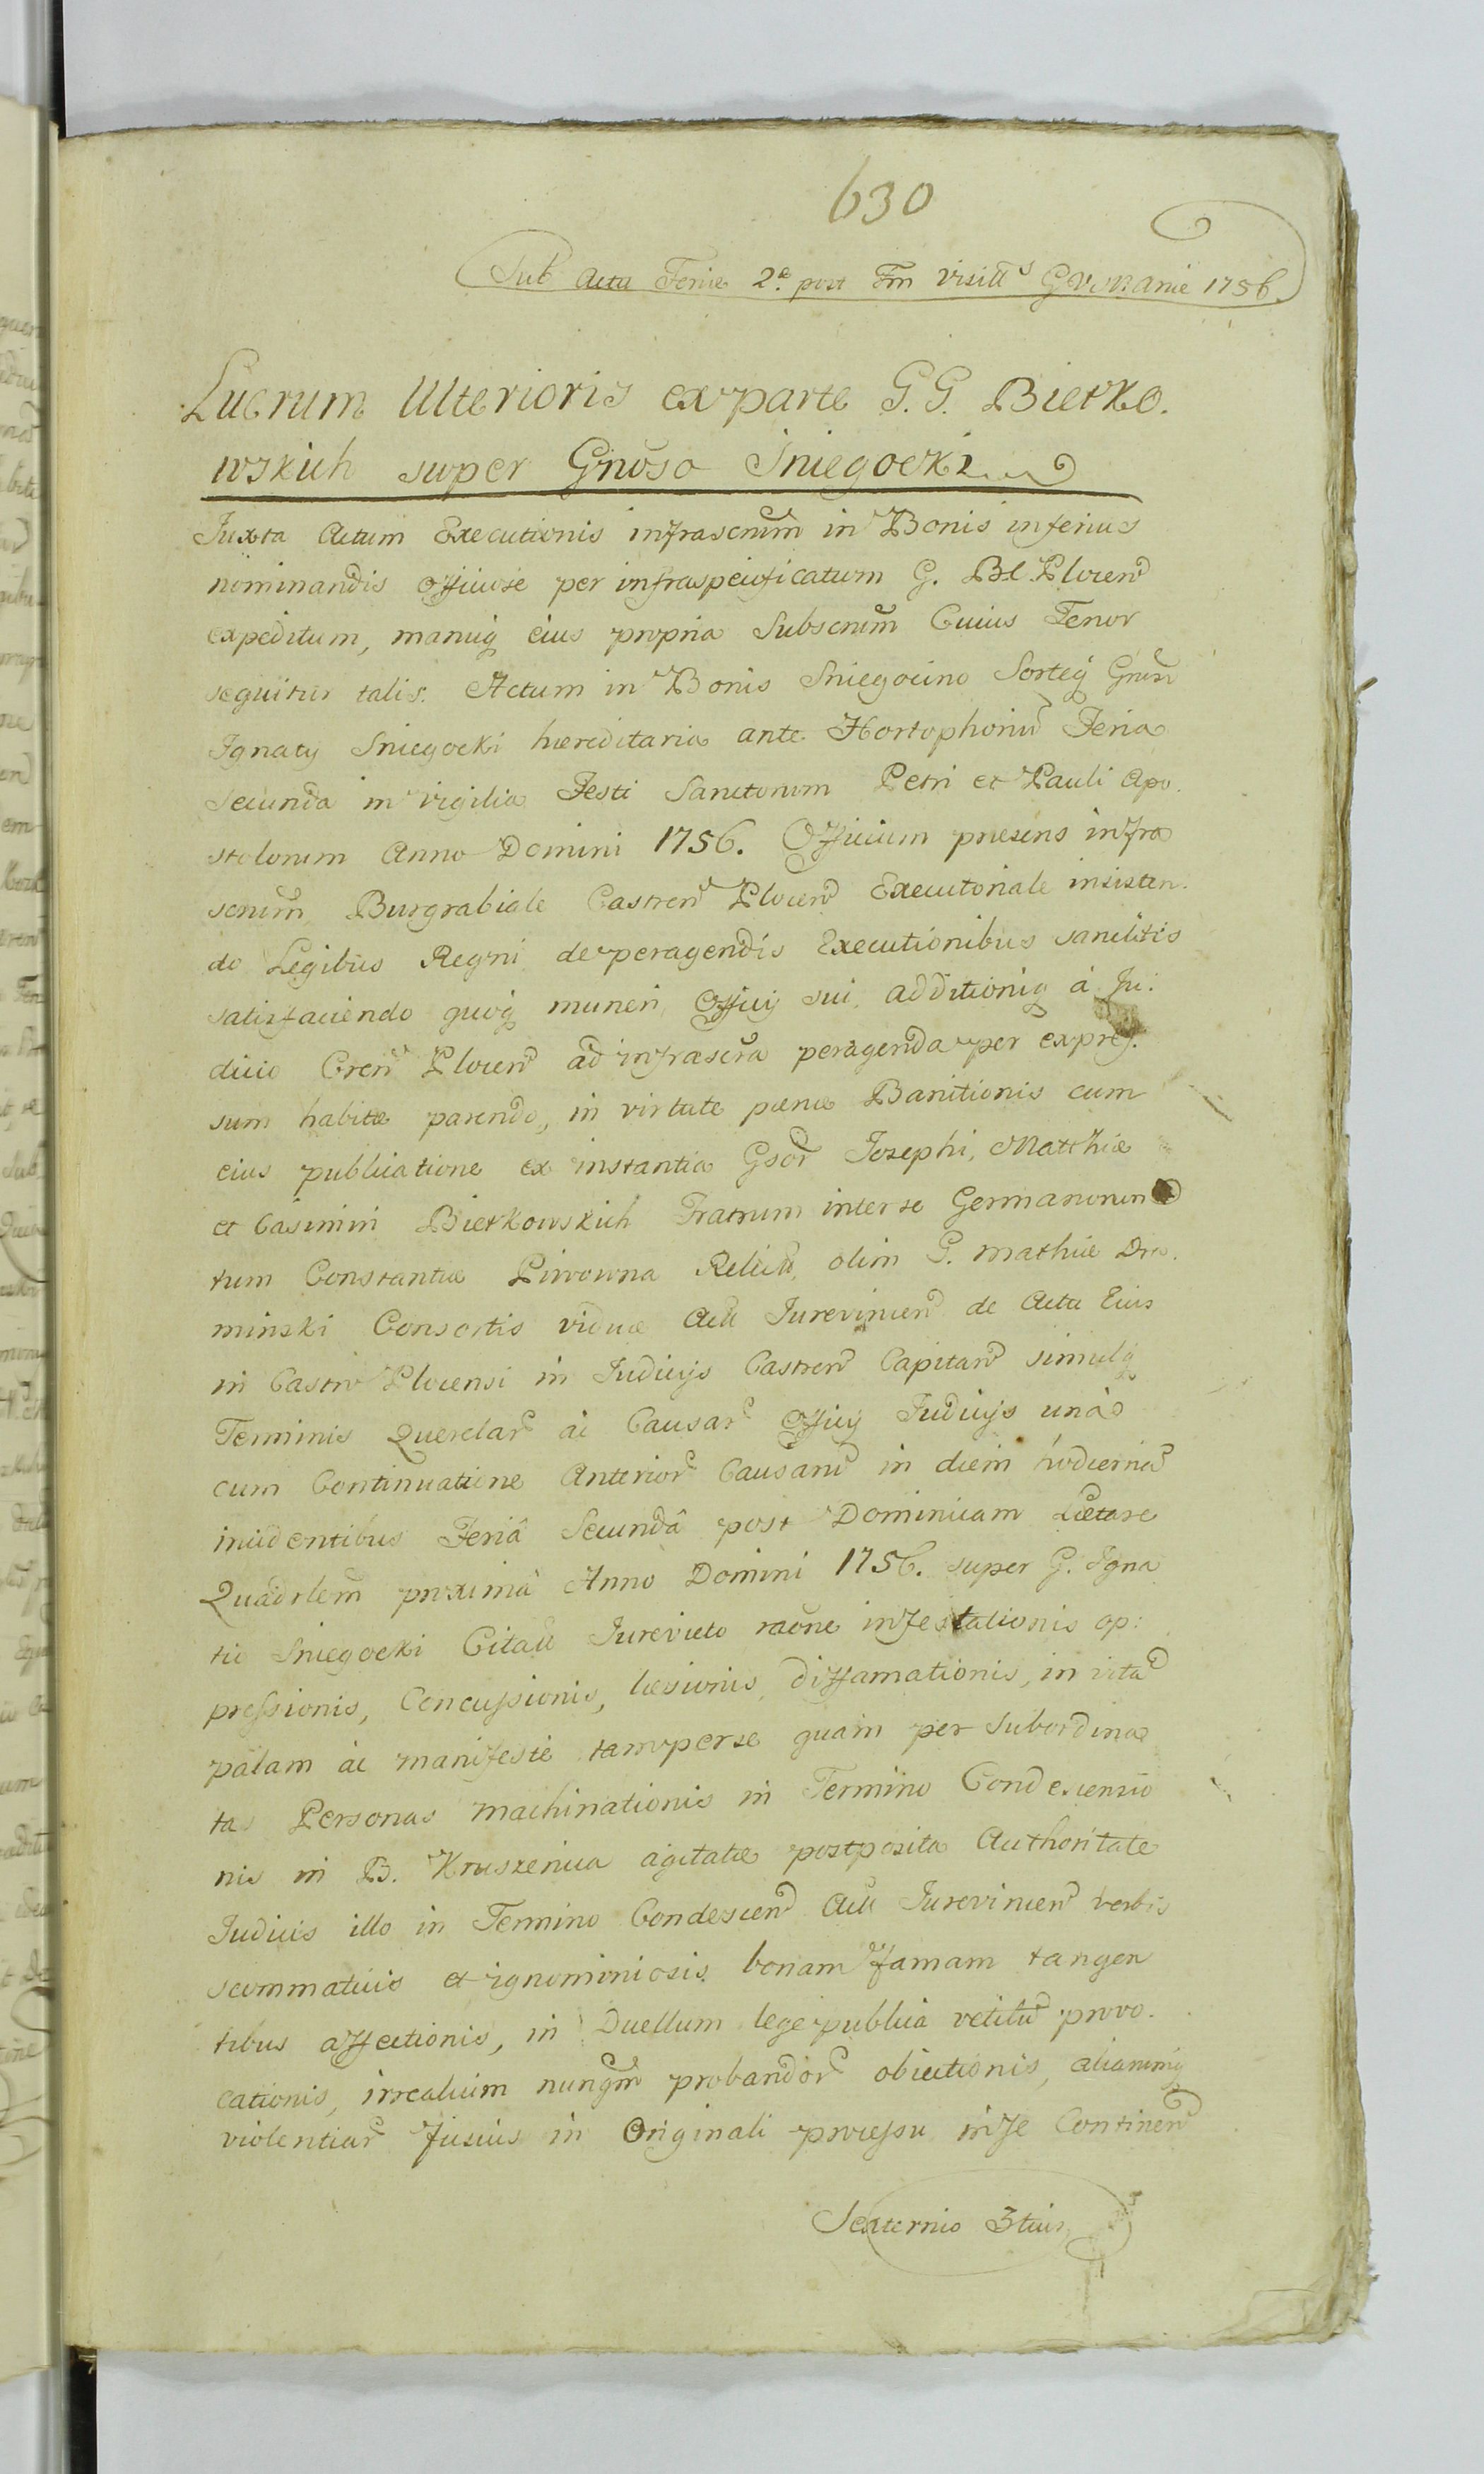 630
Sub Actu Feriæ 2æ post Fm Visitts GVMariæ 1756.
Lucrum Ulterioris ex parte G.G. Bietko.
wskich super Gnŭso Sniegocki
Juxta Actum Executionis infrascrŭm in Bonis inferius
nominandis officiose per infraspecificatum G. Bl. Plocen
expeditum, manuq eius propria Subscrŭm Cuius Tenor
sequitur talis. Actum in Bonis Sniegocino Sorteq Grun
Ignaty Sniegocki hæreditaria ante Hortophoriu Feria
Secunda in vigilia Festi Sanctorum Petri et Pauli Apo.
stolorum Anno Domini 1756. Officium præsens infra
scrŭm Burgrabiale Castren Plocen Executoriale insisten.
do Legibus Regni de peragendis Executionibus sancitis
satisfaciendo quoq muneri Officij sui additioniq á Ju:
dicio Cren Plocen ad infrascra peragenda per expres.
sum habitæ parendo, in virtute pænæ Banitionis cum
eius publicatione ex instantia Gsor Josephi, Matthiæ
et Casimiri Bietkowskich Fratrum inter se Germanorum
tum Constantiæ Piwowna Relictæ olim G. Mathiæ Dro.
minski Consortis viduæ Actt Jurevincen de Actu Eius
in Castro Plocensi in Judicijs Castren Capitan simulq
Terminis Querelar ac Causar Officij Judicijs unà
cum Continuatione Anterior Causaru in diem hodiernu
incidentibus Feriâ Secundâ post Dominicam Lætare
Quadrlem proximâ Anno Domini 1756. super G. Igna
tio Sniegocki Citatt Jurevicto raõne infestationis op:
pressionis, Concussionis, læsionis, diffamationis, in vita
palam ac manifeste tam per se quam per Subordina
tas Personas machinationis in Termino Condescensio
nis in B. Kruszenica agitatæ postposita Authoritate
Judicis illo in Termino Condescen Actt Jurevincen verbis
scommaticis et ignominiosis bonam famam tangen
tibus affectionis, in Duellum lege publica vetitu provo.
cationis, irrealium nunqm probandor obiectionis, aliarumq
violentiar fusius in Originali processu in se Continen
Sexternio 3tius